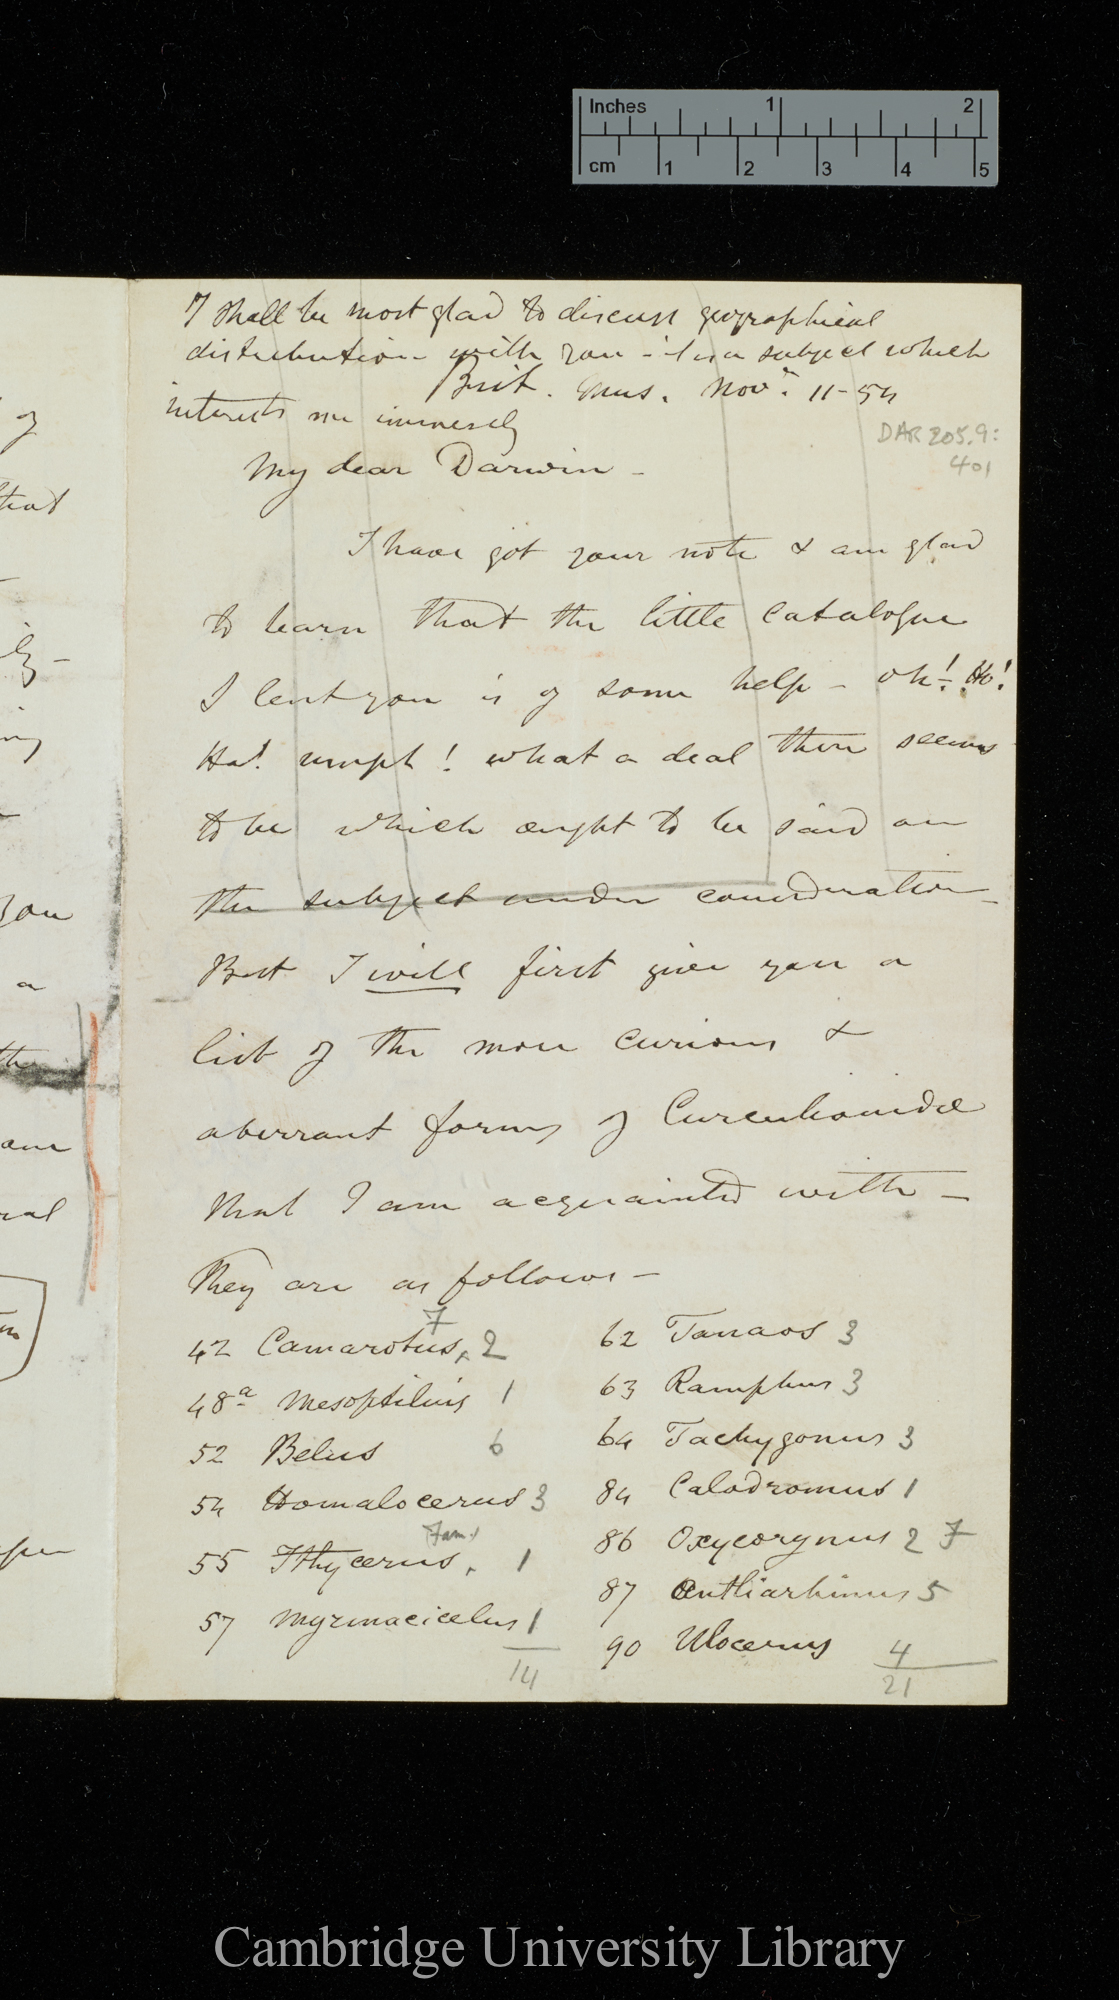 Inches 1 2
cm 1 2 3 4 5
I shall be most glad to discuss geographical
distribution with you - it is a subject which
interests me immensely
Brit. Mus. Novr. 11-54
DAR 205.9:
401
My dear Darwin -
I have got your note & am glad
to learn that the little catalogue
I lent you is of some help - oh! Ho!
Ha! umph! what a deal there seems
to be which ought to be said on
the subject under consideration -
But I will first give you a
list of the more curious &
aberrant forms of Curculionidæ
that I am acquainted with -
They are as follows -
7
42 Camarotus, 2
48a Mesoptilius 1
52 Belus 6
54 Homalocerus 3
Fam.
55 Ithycerus, 1
57 Myrmacicelus 1
14
62 Tanaos 3
63 Ramphus 3
64 Tachygonus 3
84 Calodromus 1
86 Oxycorynus 2 7
87 Antliarhinus 5
90 Ulocerus 4
21
of
that
ly -
ing
you
a
the
am
ral
Cambridge University Library